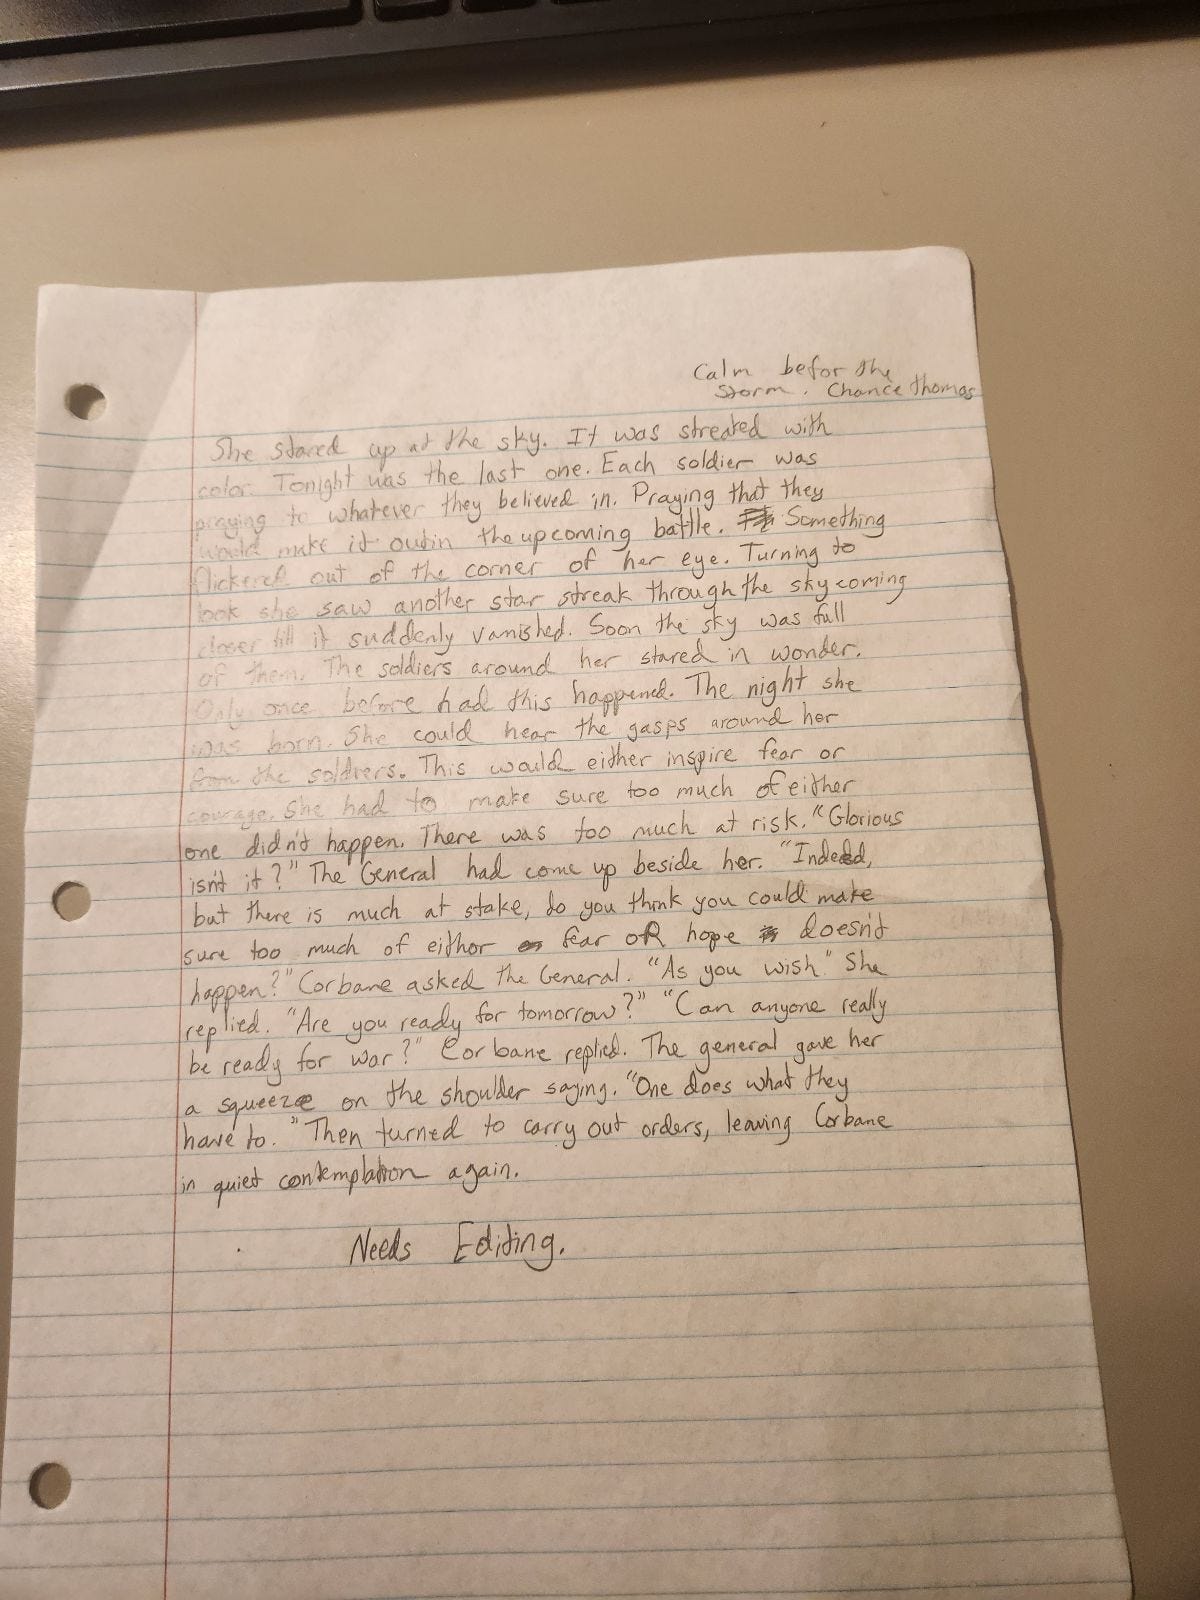 Calm befor the
Storm. Chance thomas
She stared up at the sky. It was streaked with
color. Tonight was the last one. Each soldier was
praying to whatever they believed in. Praying that they
would make it outin the upcoming battle. Something
flickered out of the corner of her eye. Turning to
look she saw another star streak through the sky coming
closer till it suddenly vanished. Soon the sky was full
of them. The soldiers around her stared in wonder.
Only once before had this happened. The night she
was born. She could hear the gasps around her
from the soldiers. This would either inspire fear or
courage. She had to make sure too much of either
one didn't happen. There was too much at risk. "Glorious
isn't it?" The General had come up beside her. "Indeed,
but there is much at stake, do you think you could make
sure too much of eithor fear oR hope doesn't
happen?" Corbane asked the General. "As you wish" She
replied. "Are you ready for tomorrow?" "Can anyone really
be ready for war?" Corbane replied. The general gave her
a squeeze on the shoulder saying. "One does what they
have to." Then turned to carry out orders, leaving Corbane
in quiet contemplation again.
Needs Editing.